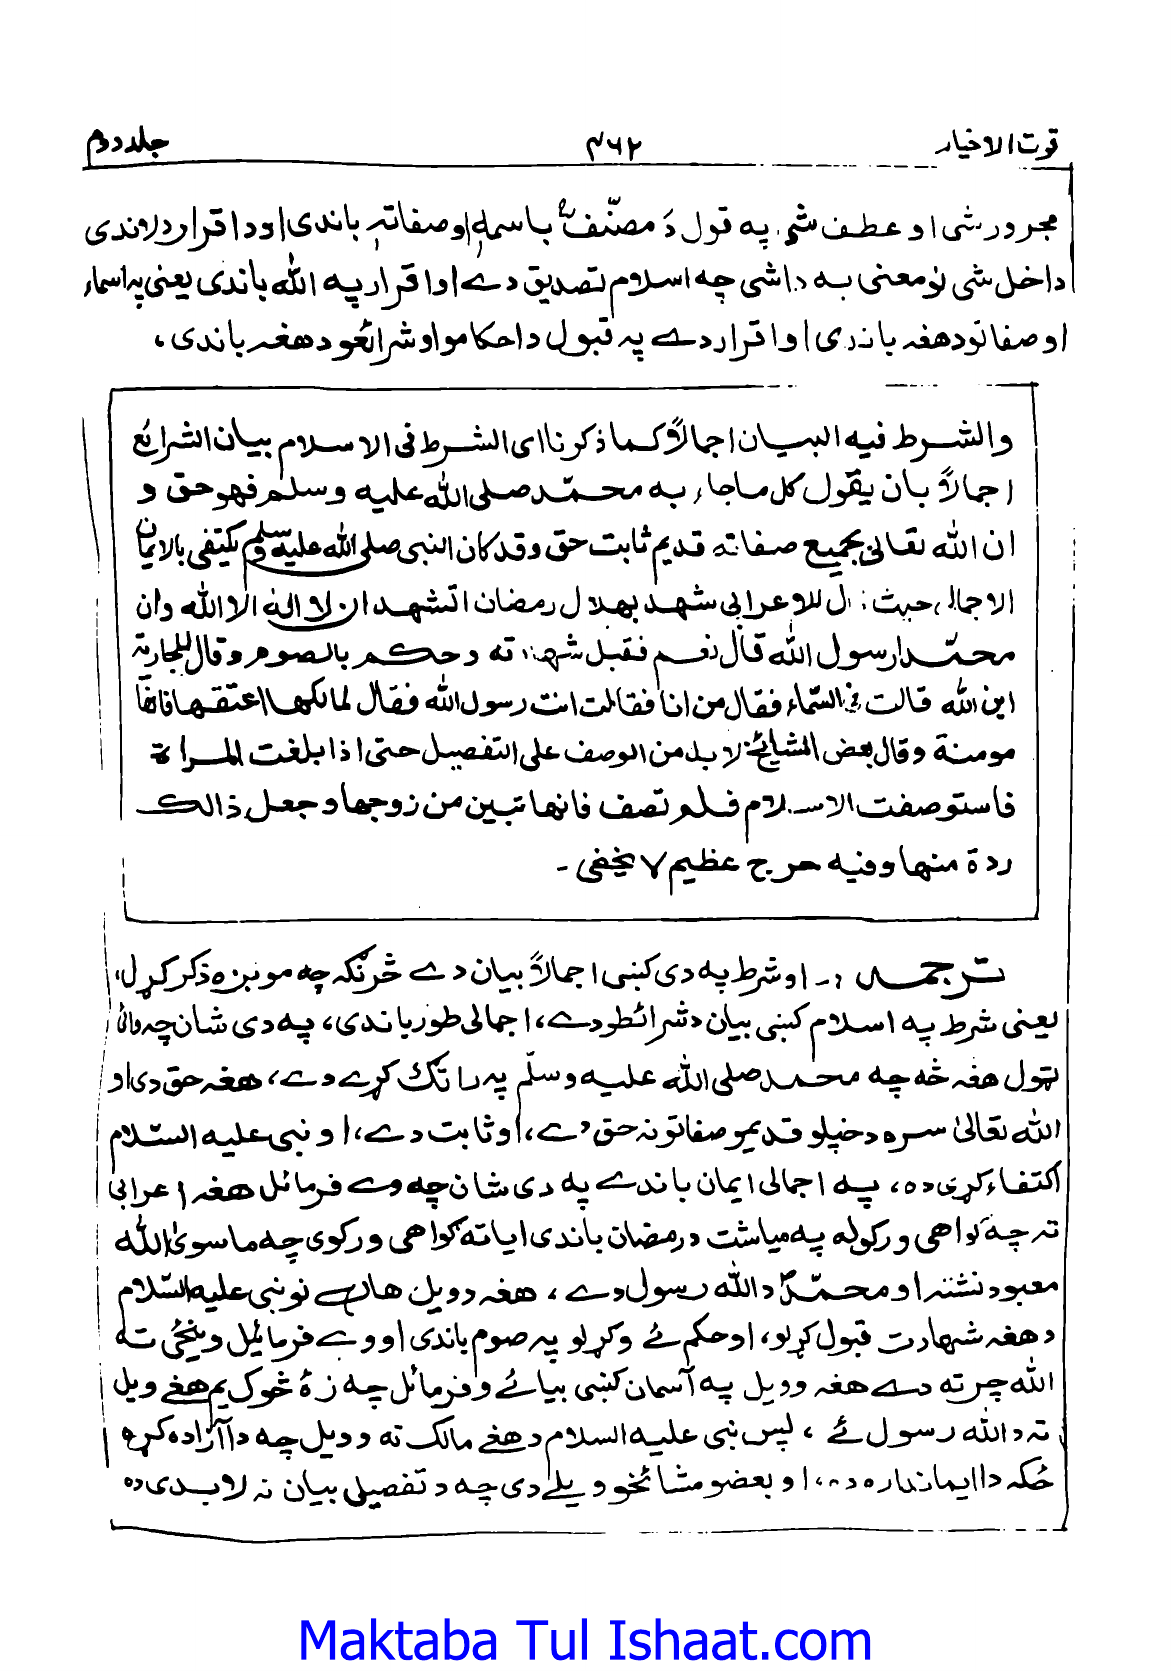 قوت الاخیار ۴۶۲ جلد دوم
مجرور شی او عطف شی په قول دَ مصنّفؒ باسمهٖ او صفاتهٖ باندی او د اقرار دلاندی
داخل شی نو معنی به داشی چه اسلام تصدیق دے او اقرار په الله باندی یعنی په اسماء
او صفاتو دهغه باندی او اقرار دے په قبول د احکامو او شرائعو دهغه باندی،
والشرط فیه البیان اجمالاً کما ذکرنا ای الشرط فی الاسلام بیان الشرائع
اجمالاً بان یقول کل ماجاء به محمّد صلی الله علیه وسلم فهو حق و
ان الله تعالی بجمیع صفاته قدیم ثابت حق وقد کان النبی صلی الله علیه وسلم یکتفی بالایمان
الاجمالی حیث قال للاعرابی شهد بهلال رمضان اتشهد ان لا اله الا الله وان
محمّدا رسول الله قال نعم فقبل شهادته وحکم بالصوم وقال للجاریة
این الله قالت فی السّماء فقال من انا فقالت انت رسول الله فقال لمالکها اعتقها فانها
مومنة وقال بعض المشائخ لا بد من الوصف علی التفصیل حتی اذا بلغت المراة
فاستوصفت الاسلام فلم تصف فانها تبین من زوجها وجعل ذالک
ردة منها وفیه حرج عظیم لا یخفی ۔
ترجمه :۔ او شرط په دی کښی اجمالاً بیان دے څرنګه چه مونږه ذکر کړل،
یعنی شرط په اسلام کښی بیان د شرائطو دے، اجمالی طور باندی، په دی شان چه وائی
ټول هغه څه چه محمد صلی الله علیه وسلّم په راتګ کړے دے، هغه حق دی او
الله تعالیٰ سره دخپلو قدیمو صفاتونه حق دے، او ثابت دے، او نبی علیه السّلام
اکتفاء کړی ده، په اجمالی ایمان باندے په دی شان چه وے فرمائل هغه اعرابی
ته چه ګواهی ورکوله په میاشت د رمضان باندی ایا ته ګواهی ورکوی چه ماسویٰ الله
معبود نشته او محمّدؐ د الله رسول دے، هغه وویل هاں نو نبی علیه السّلام
دهغه شهادت قبول کړلو، او حکم ئے وکړلو په صوم باندی او وے فرمائیل وینځی ته
الله چرته دے هغه وویل په آسمان کښی بیائے وفرمائل چه زهٔ څوک یم هغے ویل
ته د الله رسول ئے، پس نبی علیه السلام دهغے مالک ته وویل چه دا آزاده کړه
ځکه دا ایمانداره ده، او بعضو مشائخو ویلے دی چه د تفصیلی بیان نه لابدی ده
Maktaba Tul Ishaat.com